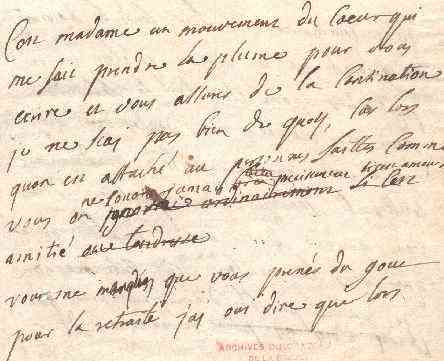 Cest madame un mouvement du Coeur qui
me fait prendre la plume pour vous
ecrire et vous assurer de la Continuation
je ne scai pas bien de quoy, Car lors
quon est attaché au personnes faittes Comme
vous on ne scait jamais precisement si cest amour
ignore ordinairement si Cest
amitié ou tendresse
vous me mandés que vous prenés du gout
pour la retraite j'ai oui dire que lors
ARCHIVES DU
DE LA